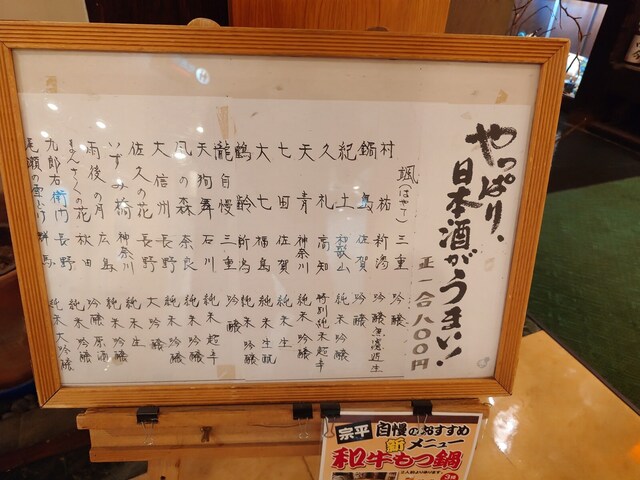 やっぱり、
日本酒がうまい!
正一合八〇〇円
颯(はやて) 三重 吟醸
村祐 新潟 吟醸無濾過生
鍋島 佐賀 吟醸
紀土 和歌山 純米吟醸
久礼 高知 特別純米超辛
天青 神奈川 純米吟醸
七田 佐賀 純米生
大七 福島 純米生酛
鶴齢 新潟 純米
瀧自慢 三重 吟醸
天狗舞 石川 純米超辛
風の森 奈良 純米吟醸
大信州 長野 大吟醸
佐久の花 長野 純米生
いずみ橋 神奈川 純米吟醸
雨後の月 広島 吟醸原酒
まんさくの花 秋田 純米吟醸
九郎右衛門 長野 純米吟醸
尾瀬の雪どけ 群馬 純米大吟醸
宗平 自慢のおすすめ
新メニュー
和牛もつ鍋